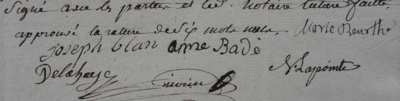 signé avec les parties et led. notaire lecture faitte
approuvé la rature de six mots nuls. Marie Beurth
joseph blan ame Bade
Delahaye N Lapointe